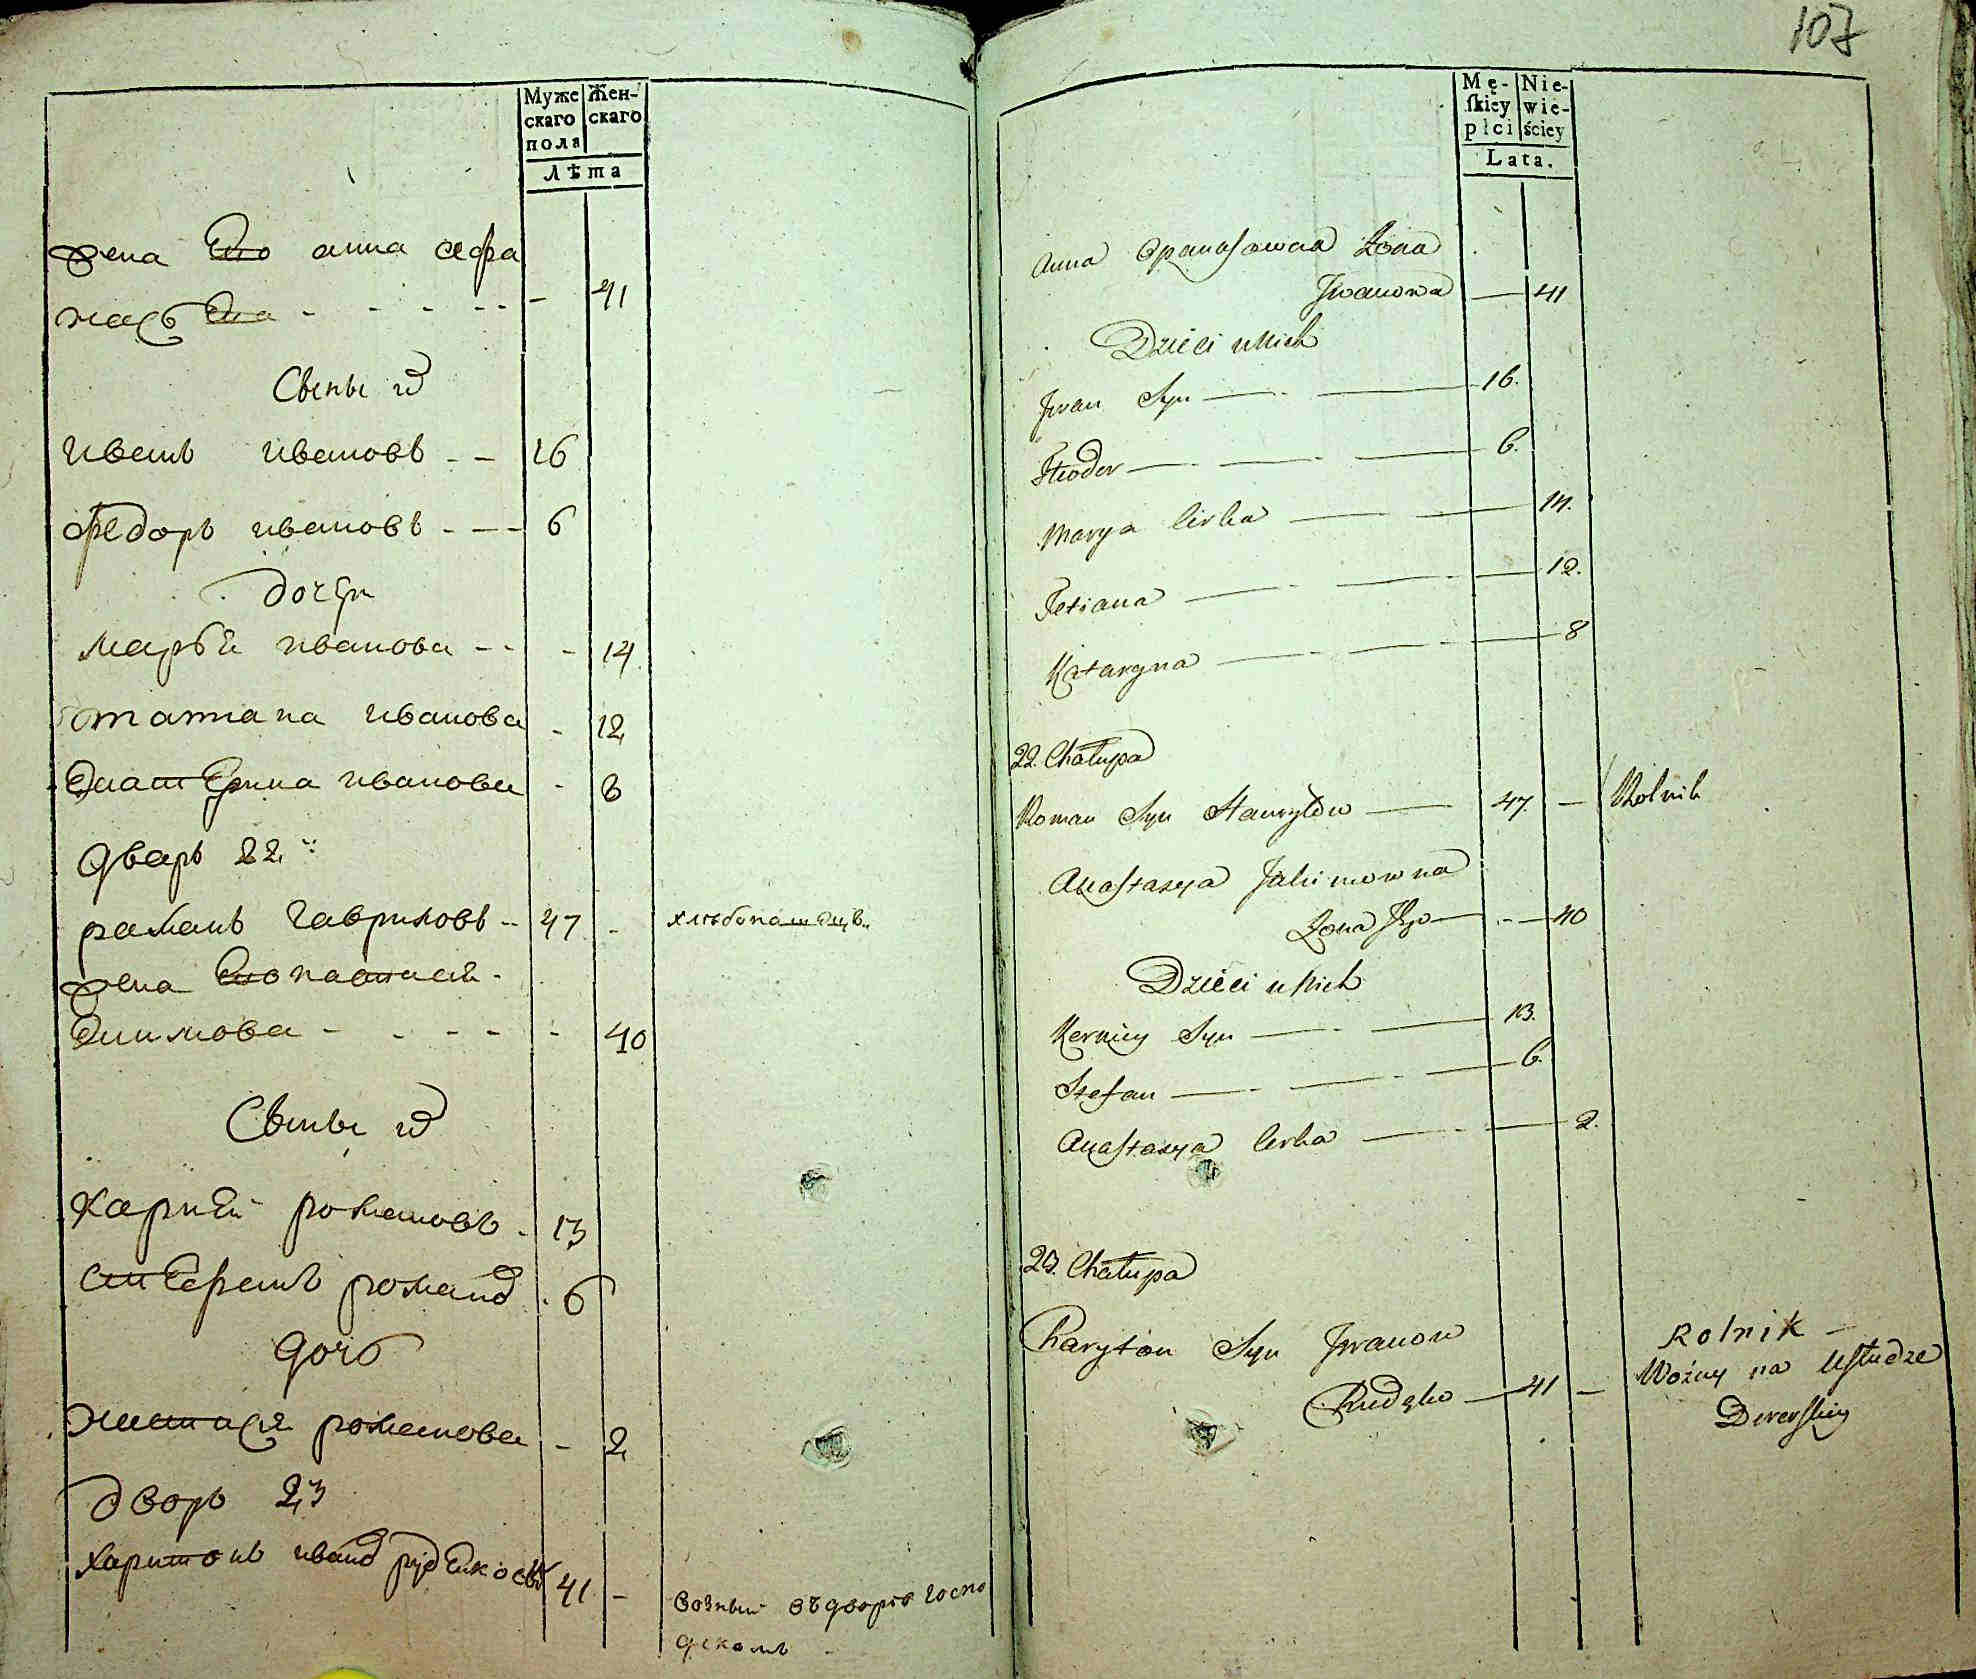 Муже Жен-
скаго скаго
пола
Лѣта
жена Его анна афа
насьева - - - - - - 41
Сыны их
иванъ ивановъ - - 16
Федоръ ивановъ - - - 6
дочери
марья иванова - - - 14
татиана иванова - 12
Екатерина иванова - 8
дваръ 22
раманъ гавриловъ - - 47 - хлѣбопашецъ
жена Его настася
Екимова - - - - - 40
Сыны их
карнѣй романовъ - 13
стефанъ романов - 6
дочь
настася романова - 2
дворъ 23
харитонъ иванов руденковъ 41 - возный въ дворѣ госпо
дскомъ
107
Mę- Nie-
skiey wie-
płci ściey
Lata.
Anna Opanasowna Żona
Jwanowa — 41
Dzieci u Nich
Jwan Syn — — 16.
Theodor — — — 6.
Marya Corka — — 14.
Tetiana — — — 12.
Kataryna — — — 8
22. Chałupa
Roman Syn Hawryłow — 47 — Rolnik
Anastazya Jakimowna
Żona Jego — - — 40
Dzieci u Nich
Korniey Syn — — 13.
Stefan — — — 6.
Anastazya Corka — — 2.
23. Chałupa
Charyton Syn Jwanow
Rudęko — 41 —
Rolnik —
Woźny na Usłudze
Dworskiey